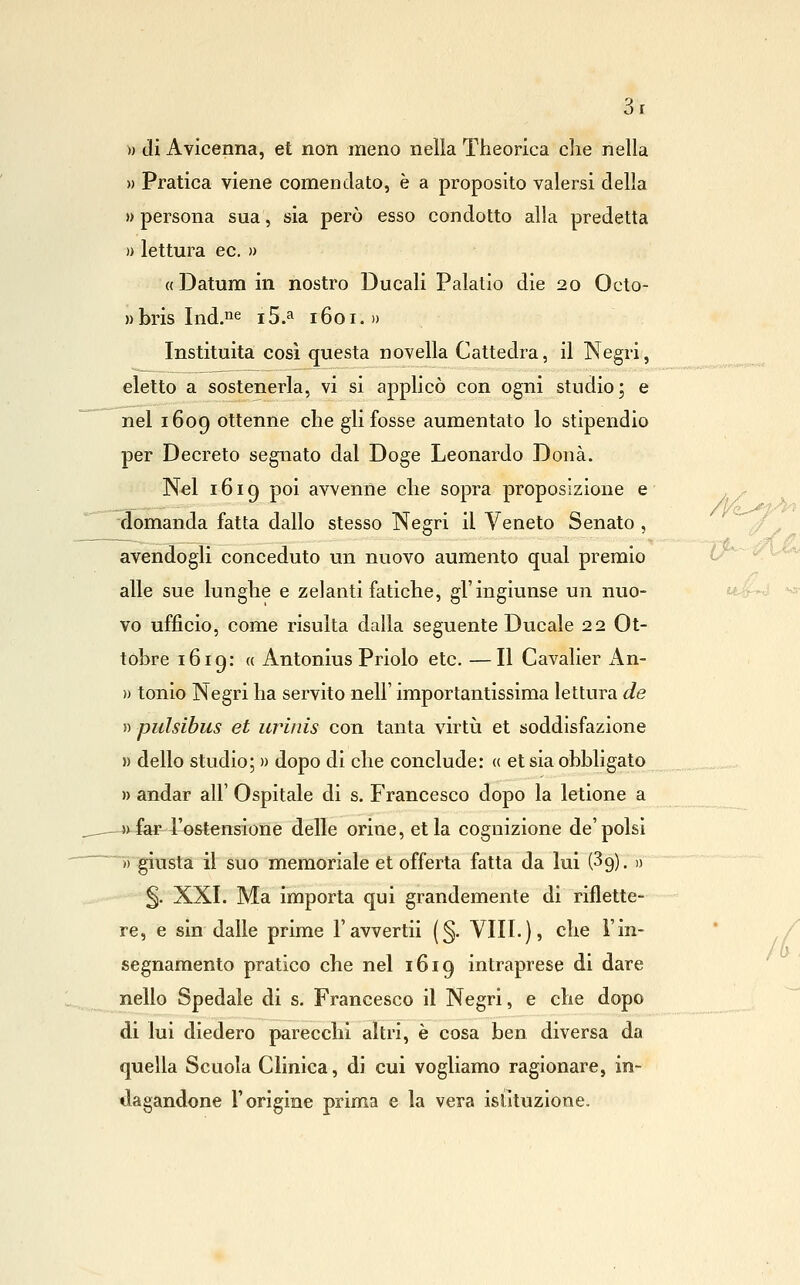 31
» di Avicenna, et non meno nella Theorica che nella
» Pratica viene comendato, è a proposito valersi della
» persona sua, sia però esso condotto alla predetta
» lettura ec. »
« Datum in nostro Ducali Palatio die 20 Octo-
» bris Ind.ne 15.a 1601. »
Instituita così questa novella Cattedra, il Negri,
eletto a sostenerla, vi si applicò con ogni studio; e
nel 1609 ottenne che gli fosse aumentato lo stipendio
per Decreto segnato dal Doge Leonardo Donà.
Nel 1619 poi avvenne che sopra proposizione e
domanda fatta dallo stesso Negri il Veneto Senato,
avendogli conceduto un nuovo aumento qual premio
alle sue lunghe e zelanti fatiche, gl'ingiunse un nuo-
vo ufficio, come risulta dalla seguente Ducale 22 Ot-
tobre 1619: « Antonius Priolo etc. — Il Cavalier An-
» tonio Negri ha servito nell'importantissima lettura de
» pulsibus et urinis con tanta virtù et soddisfazione
» dello studio; » dopo di che conclude: « et sia obbligato
» andar all'Ospitale di s. Francesco dopo la letione a
» far l'ostensione delle orine, et la cognizione de' polsi
» giusta il suo memoriale et offerta fatta da lui (39). »
§. XXI. Ma importa qui grandemente di riflette-
re, e sin dalle prime l'avvertii (§. VIII.), che l'in-
segnamento pratico che nel 1619 intraprese di dare
nello Spedale di s. Francesco il Negri, e che dopo
di lui diedero parecchi altri, è cosa ben diversa da
quella Scuola Clinica, di cui vogliamo ragionare, in-
dagandone l'origine prima e la vera istituzione.